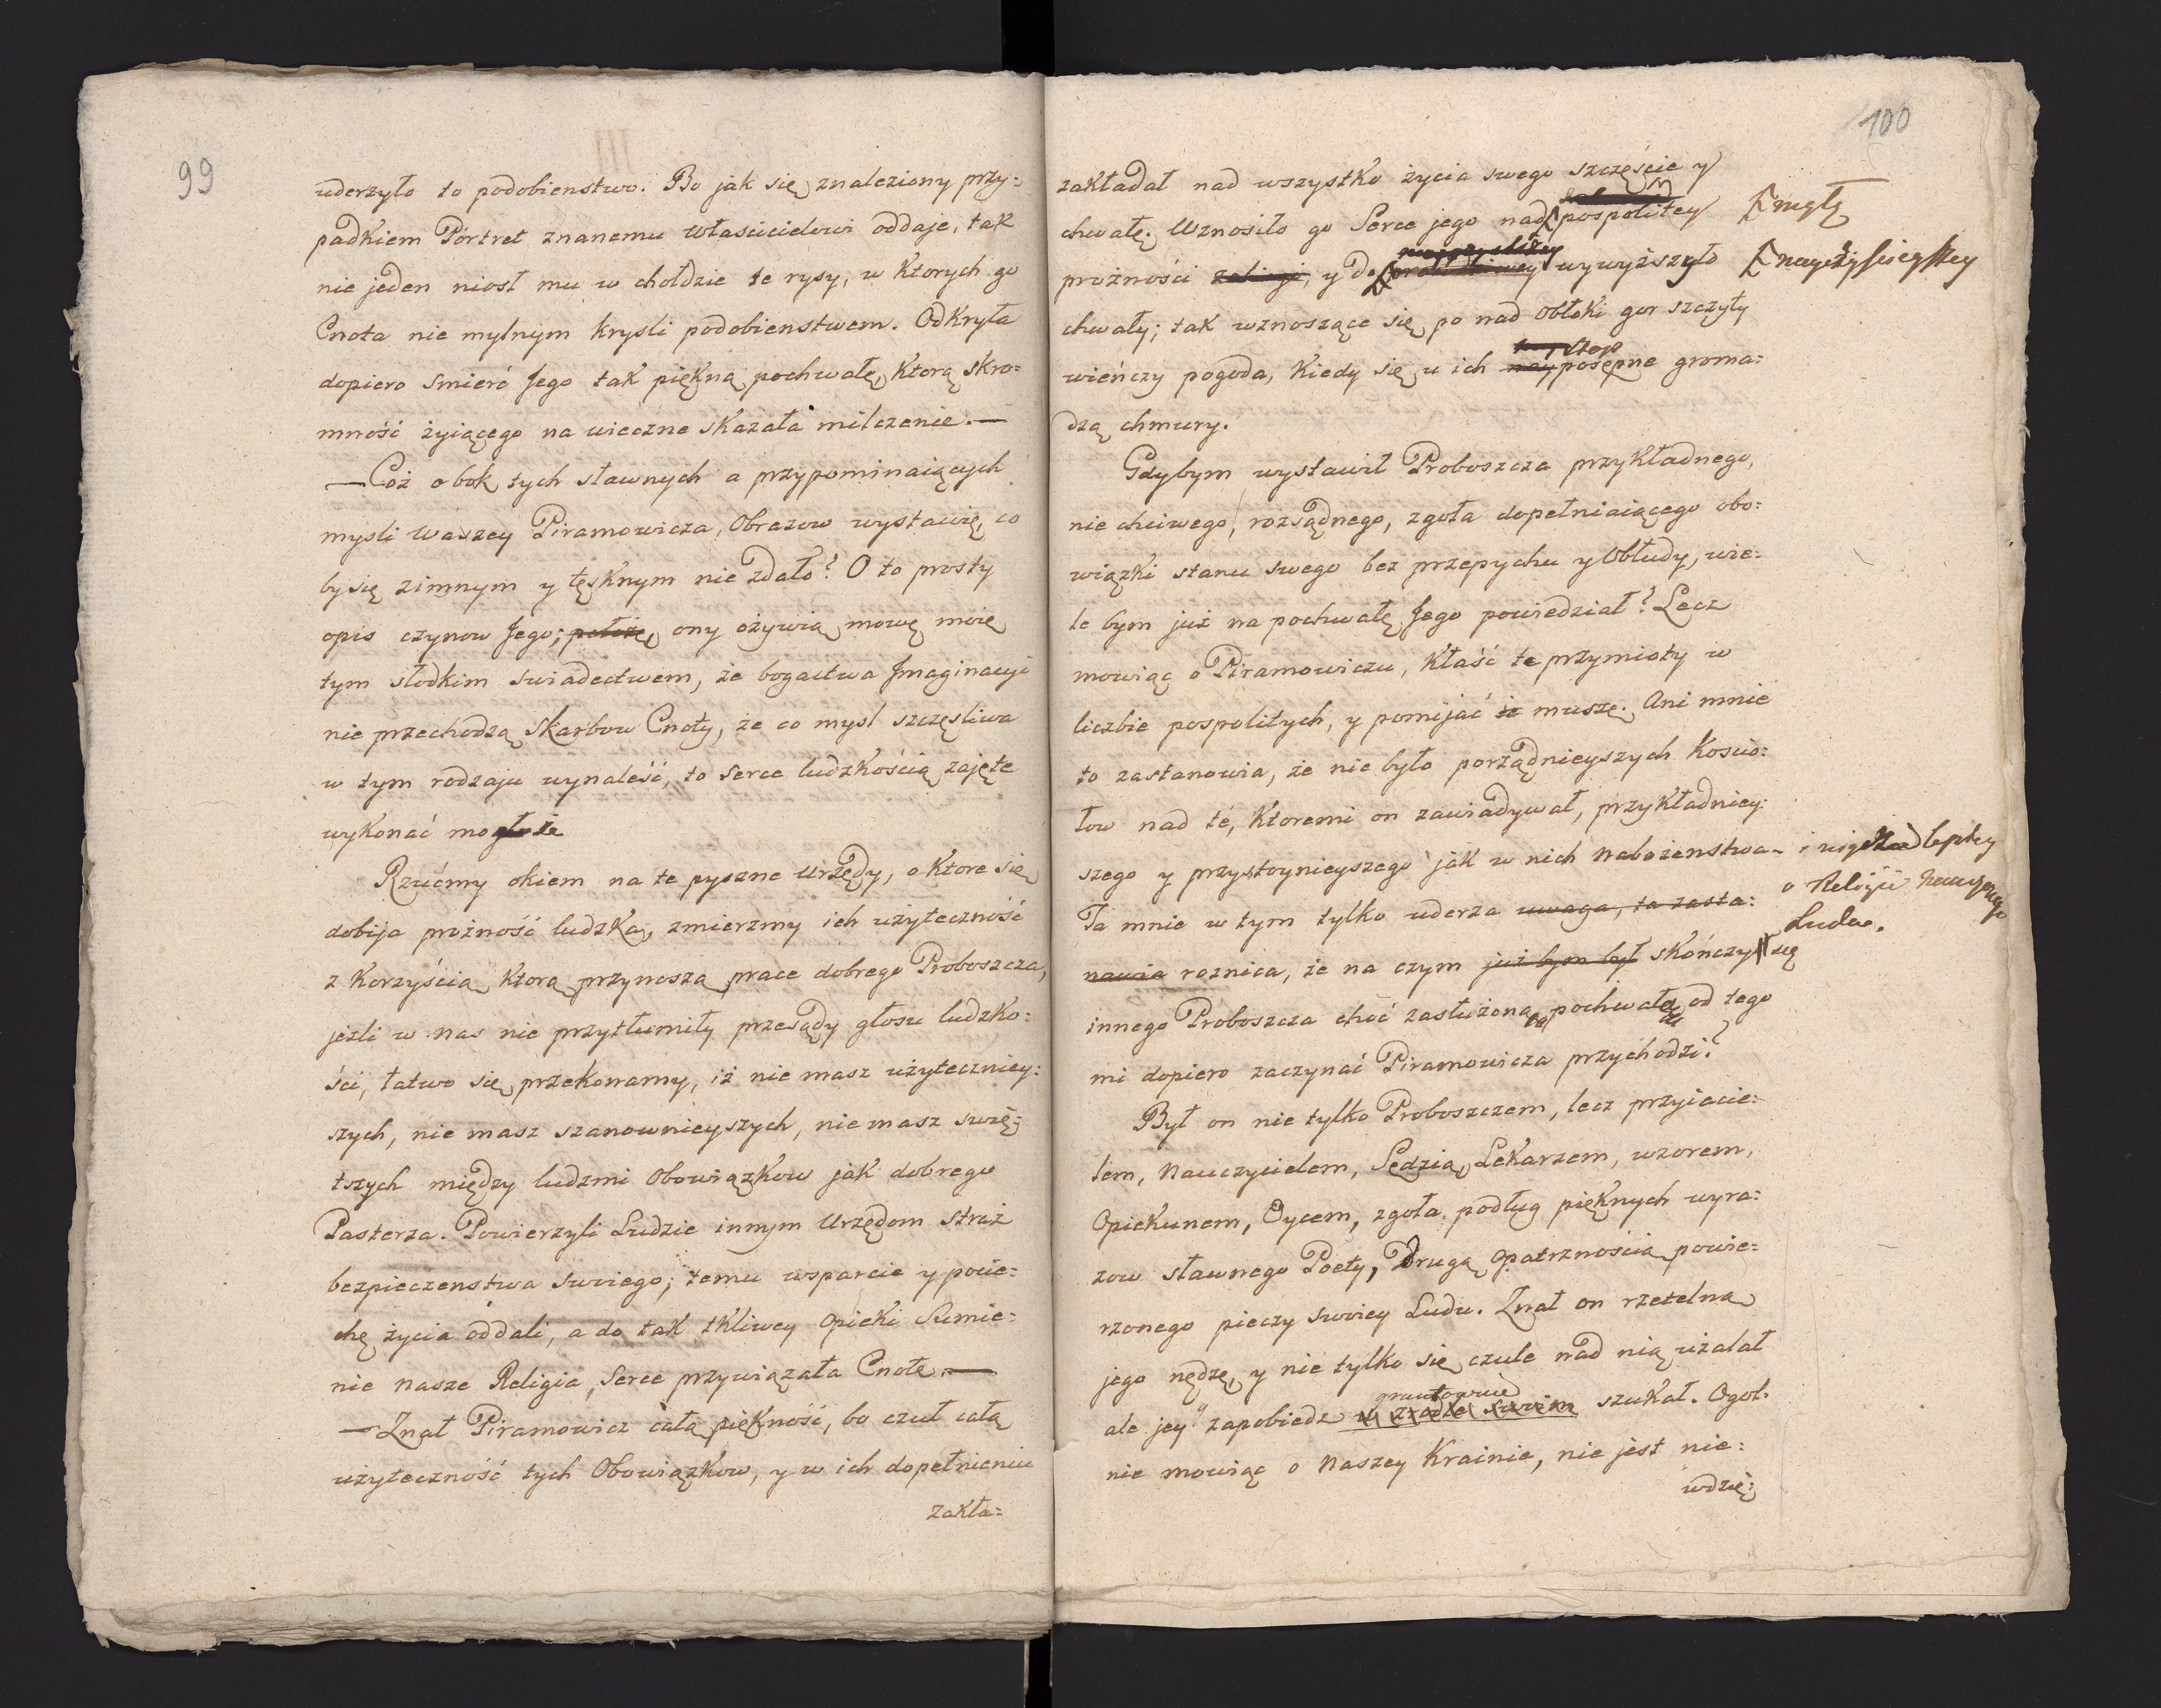 99
uderzyło to podobienstwo. Bo jak się znaleziony przy=
padkiem Pórtret znanemu Własciicielowi oddaje, tak
nie jeden niosł mu w chołdzie te rysy, w ktorych go
Cnota nie mylnym krysli podobienstwem. Odkryła
dopiero smierć Jego tak piękną pochwałę, ktorą skro=
mność żyiącego na wieczne skazała milczenie.—
—Coż obok tych sławnych a przypominaiących
mysli Waszey Piramowicza, Obrazow wystawię, co
by się zimnym y tęsknym nie zdało? O to prosty
opis czynow Jego; położę, ony ożywią mowę moię
tym słodkim swiadectwem, że bogactwa Jmaginacyi
nie przechodzą skarbow Cnoty, że co mysl szczęsliwa
w tym rodzaju wynaleść, to serce ludzkością zajęte
wykonać mogło
Rzućmy okiem na te pyszne Urzędy, o ktore się
dobija prożność ludzka, zmierzmy ich użyteczność
z korzyścią ktorą przynoszą prace dobrego Proboszcza,
jeżli w nas nie przytłumiły przesądy głosu ludzko=
ści, łatwo się przekonamy, iż nie masz użyteczniey=
szych, nie masz szanownieyszych, nie masz swię=
tszych między ludzmi Obowiązkow jak dobrego
Pasterza. Powierzyli Ludzie innym Urzędom straż
bezpieczenstwa swoiego; temu wsparcie y pocie=
chę życia oddali, a do tak tkliwey Opieki Sumie=
nie nasze Religia, serce przywiązała Cnote.—
—Znał Piramowicz całą piękność, bo czuł całą
użyteczność tych Obowiązkow, y w ich dopełnieniu
zakła=
100
zakładał nad wszystko życia swego szczęście y
chwałę. Wznosiło go Serce jego nad pospolitey mgłę
prożności y do wywyższyło nayczyscieyszey
chwały; tak wznoszące się po nad obłoki gor szczyty
wieńczy pogoda, kiedy się u ich stop posępne groma=
dzą chmury.
Gdybym wystawił Proboszcza przykładnego,
nie chciwego, rozsądnego, zgoła dopełniaiącego obo=
wiązki stanu swego bez przepychu y Obłudy, wie=
le bym już na pochwałę Jego powiedział? Lecz
mowiąc o Piramowiczu, kłaść te przymioty w
liczbie pospolitych, y pomijać ie muszę. Ani mnie
to zastanowia, że nie było porządnieyszych Koscio=
łow nad té, ktoremi on zawiadywał, przykładniey=
szego y przystoynieyszego jak w nich nabożenstwa i nigdzie lepiey
o Religii nauczonego
Ludu.
Ta mnie w tym tylko uderza uwaga, ta zasta=
nawia roznica, że na czym już bym był skończył się
innego Proboszcza choć zasłużona pochwała od tego
mi dopiero zaczynać Piramowicza przychodzi?
Był on nie tylko Proboszczem, lecz przyiacie=
lem, Nauczycielem, Sędzią, Lekarzem, wzorem,
Opiekunem, Oycem, zgoła podług pięknych wyra=
zow sławnego Poety, Drugą Opatrznością powie=
rzonego pieczy swoiey Ludu. Znał on rzetelną
jego nędzę, y nie tylko się czule nad nią użalał
ale jey zapobiedz gruntownie szukał. Ogol=
nie mowiąc o Naszey Krainie, nie jest nie=
wdzię=